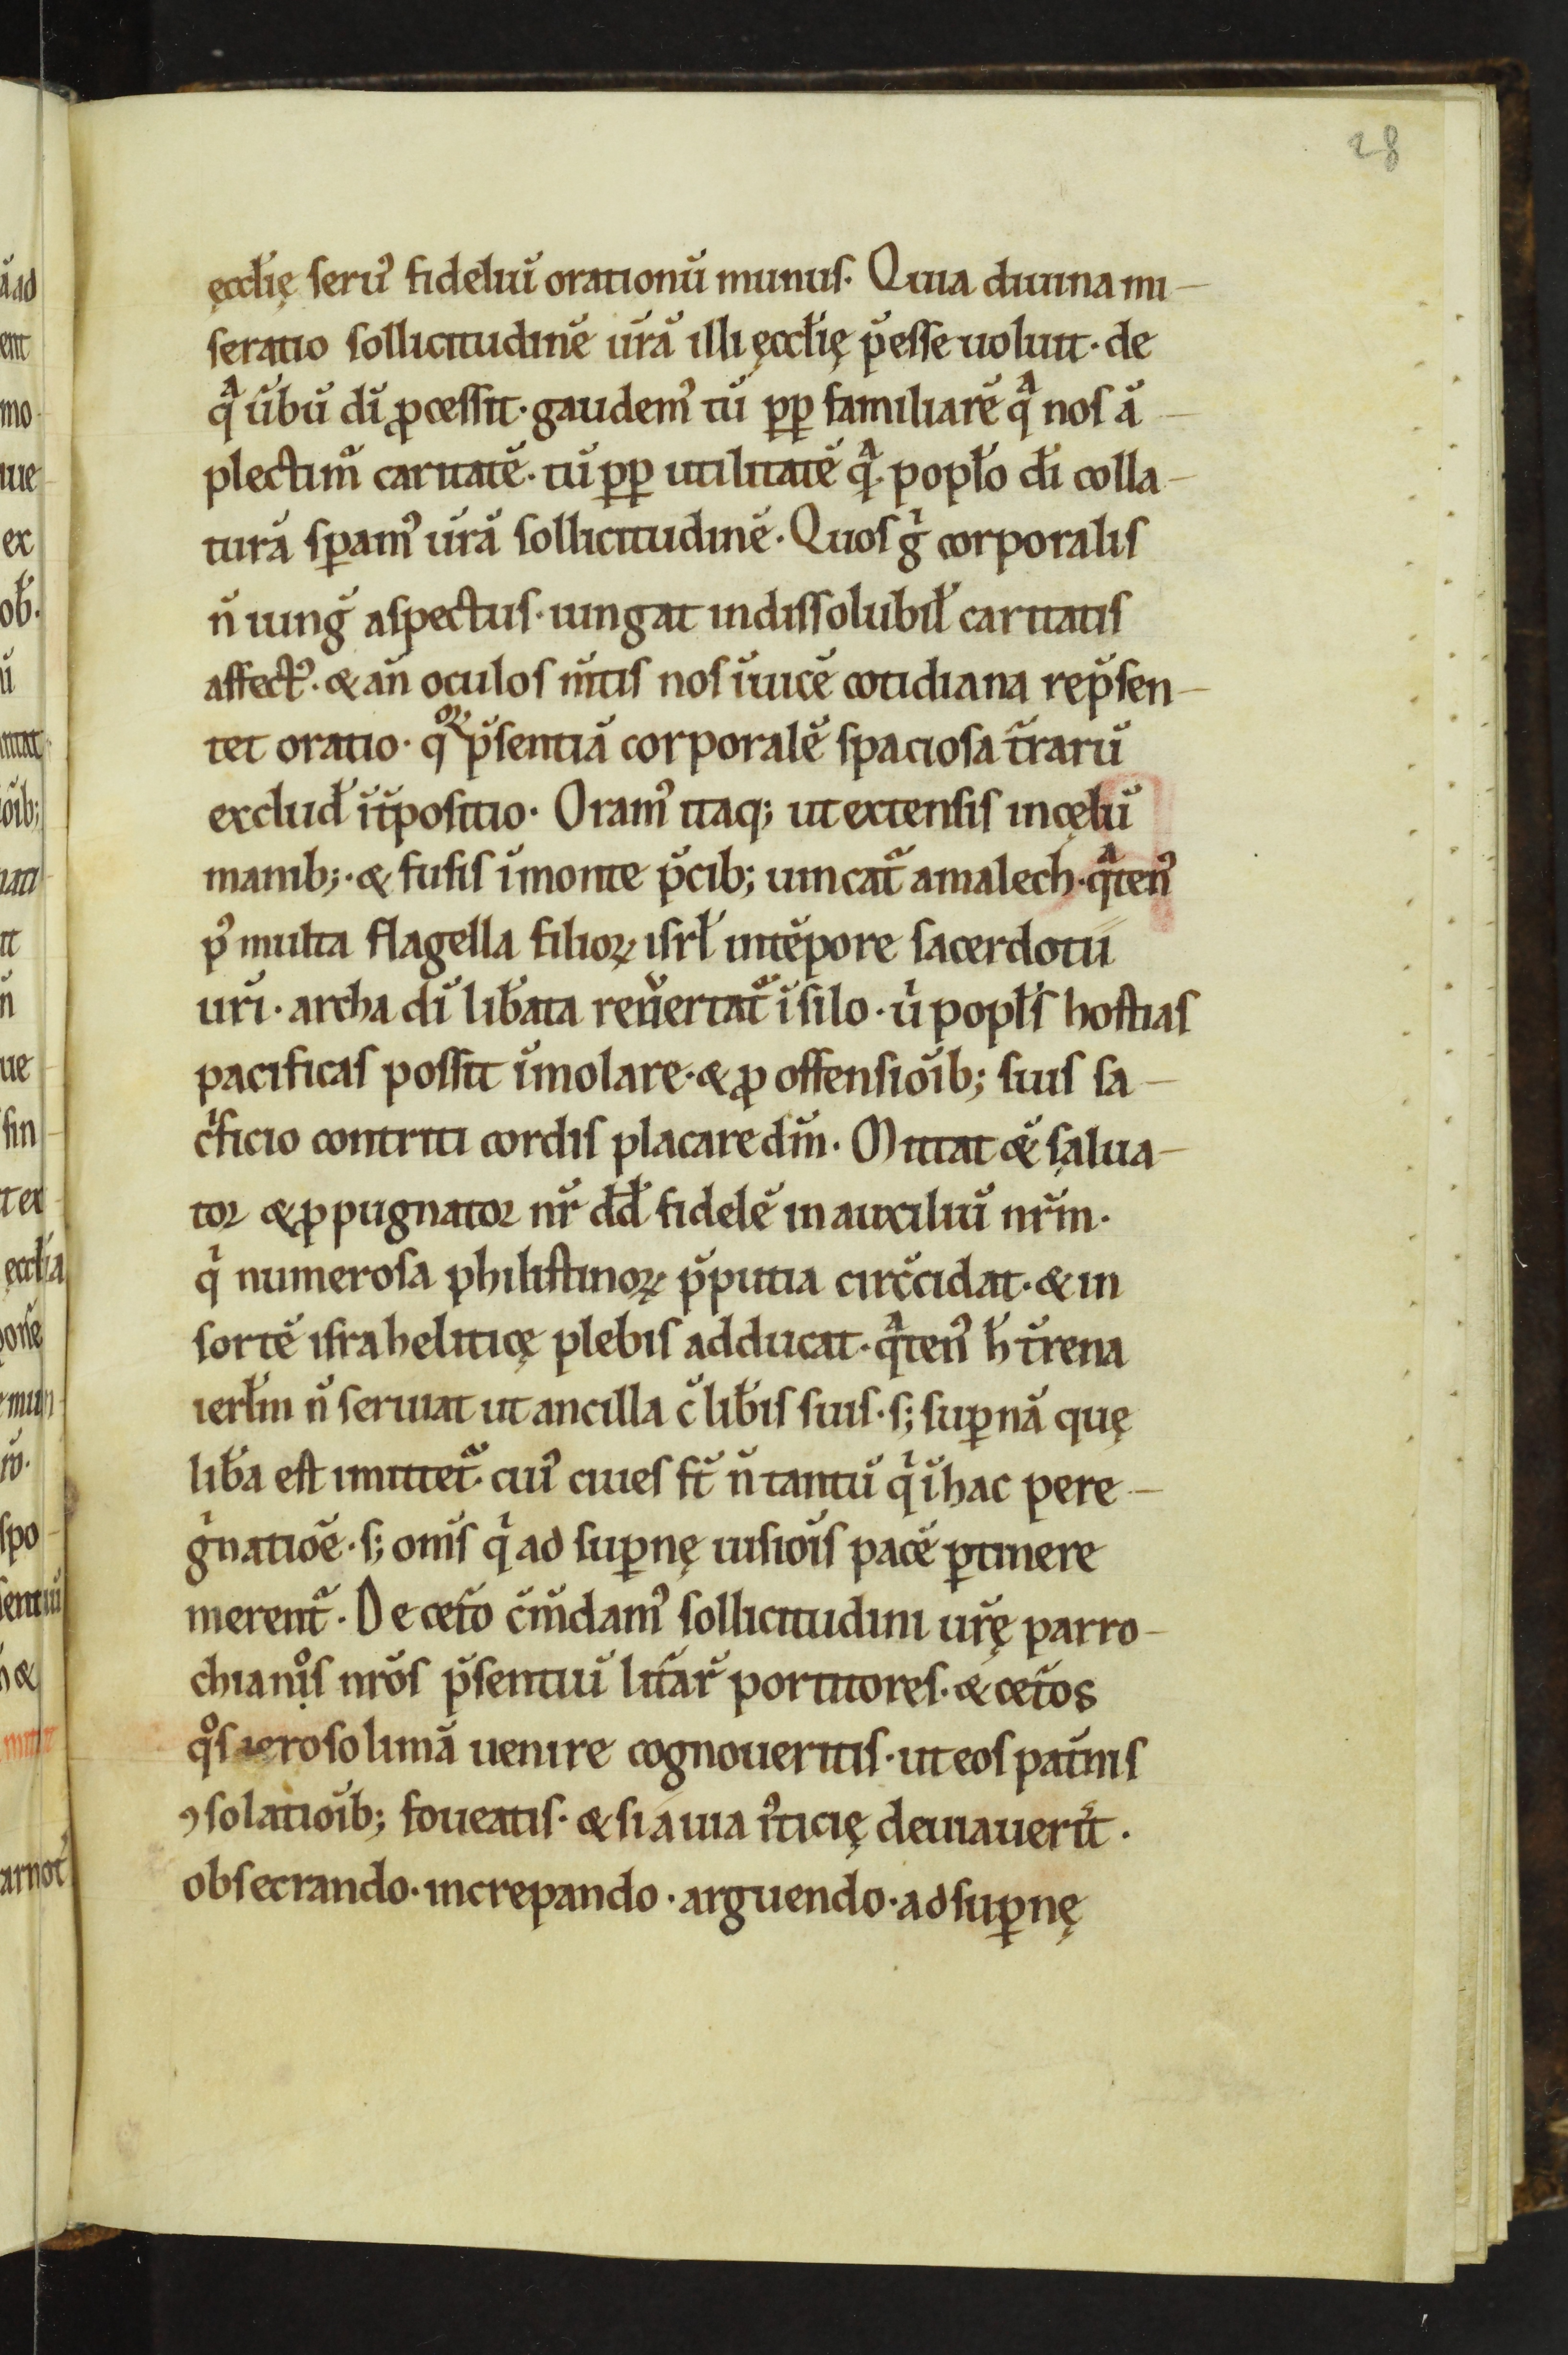 28
ęccl̄ię seruꝰ fideliū orationū munus. Quia diuina mi-
seratio sollicitudinē ur̄ā illi ęccl̄ię p̄esse uoluit. de
qᵃ ūbū dī ꝓcessit. gaudemꝰ tū ꝓp familiarē qᵃ nos ā-
plectimꝰ caritatē. tū ꝓp utilitatē qᵃ. popl̄o dī colla-
turā sꝑamꝰ ur̄ā sollicitudinē. Quos gͥ corporalis
n̄ iunḡ aspectus. iungat indissolubil̄ caritatis
affectꝰ. & an̄ oculos m̄tis nos īuicē cotidiana rep̄sen-
tet oratio. qͦꝝ p̄sentiā corporalē spaciosa t̄rarū
exclud̄ īt̄positio. Oramꝰ itaq; ut extensis in cęlū
manib;. & fusis ī monte p̄cib; uincat᷑ amalech. qᵃtenꝰ
pꝰ multa flagella filioꝝ isrl̄ in tēpore sacerdotii
ur̄i. archa dī lib̄ata reuertat᷑ ī silo. uͥ popl̄s hostias
pacificas possit īmolare. & ꝓ offensioīb; suis sa-
cͥficio contriti cordis placare dm̄. Mittat & salua-
tor & ꝓpugnator nr̄ dd̄ fidelē in auxiliū nr̄m.
qͥ numerosa philistinoꝝ p̄putia circ̄cidat. & in
sortē israheliticę plebis adducat. qᵃtenꝰ h̄ t̄rena
ierl̄m n̄ seruiat ut ancilla c̄ lib̄is suis. s; suꝑnā quę
lib̄a est imitet᷑. cuiꝰ ciues st̄ n̄ tantū qͥ ī hac pere-
gͥnatiōe. s; om̄s qͥ ad suꝑnę uisiōis pacē ꝑtinere
merent᷑. De cet̄o c̄m̄damꝰ sollicitudini ur̄ę parro-
chianos nr̄os p̄sentiū lit̄ar̄ portitores. & cet̄os
qͦs ierosolimā uenire cognoueritis. ut eos pat̄nis
ꝯsolatioīb; foueatis. & si a uia iꝰticię deuiauerīt.
obsecrando. increpando. arguendo. ad suꝑnę